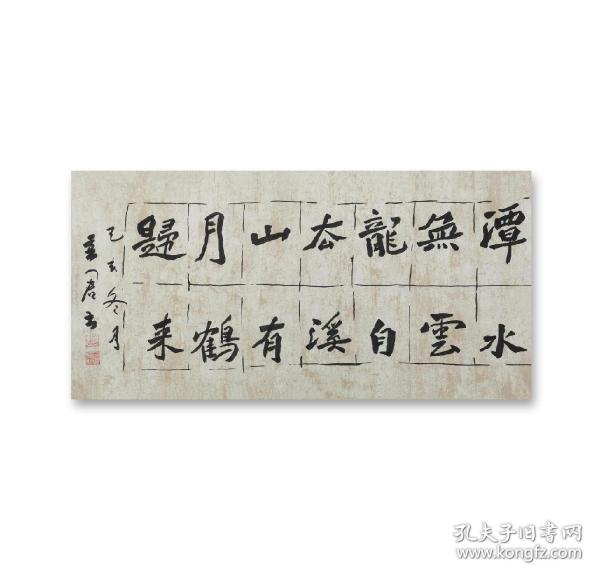 潭水
無雲
龍自
厺溪
山有
月鶴
歸来
己亥冬月
君书
孔夫子旧书网
www.kongfz.com